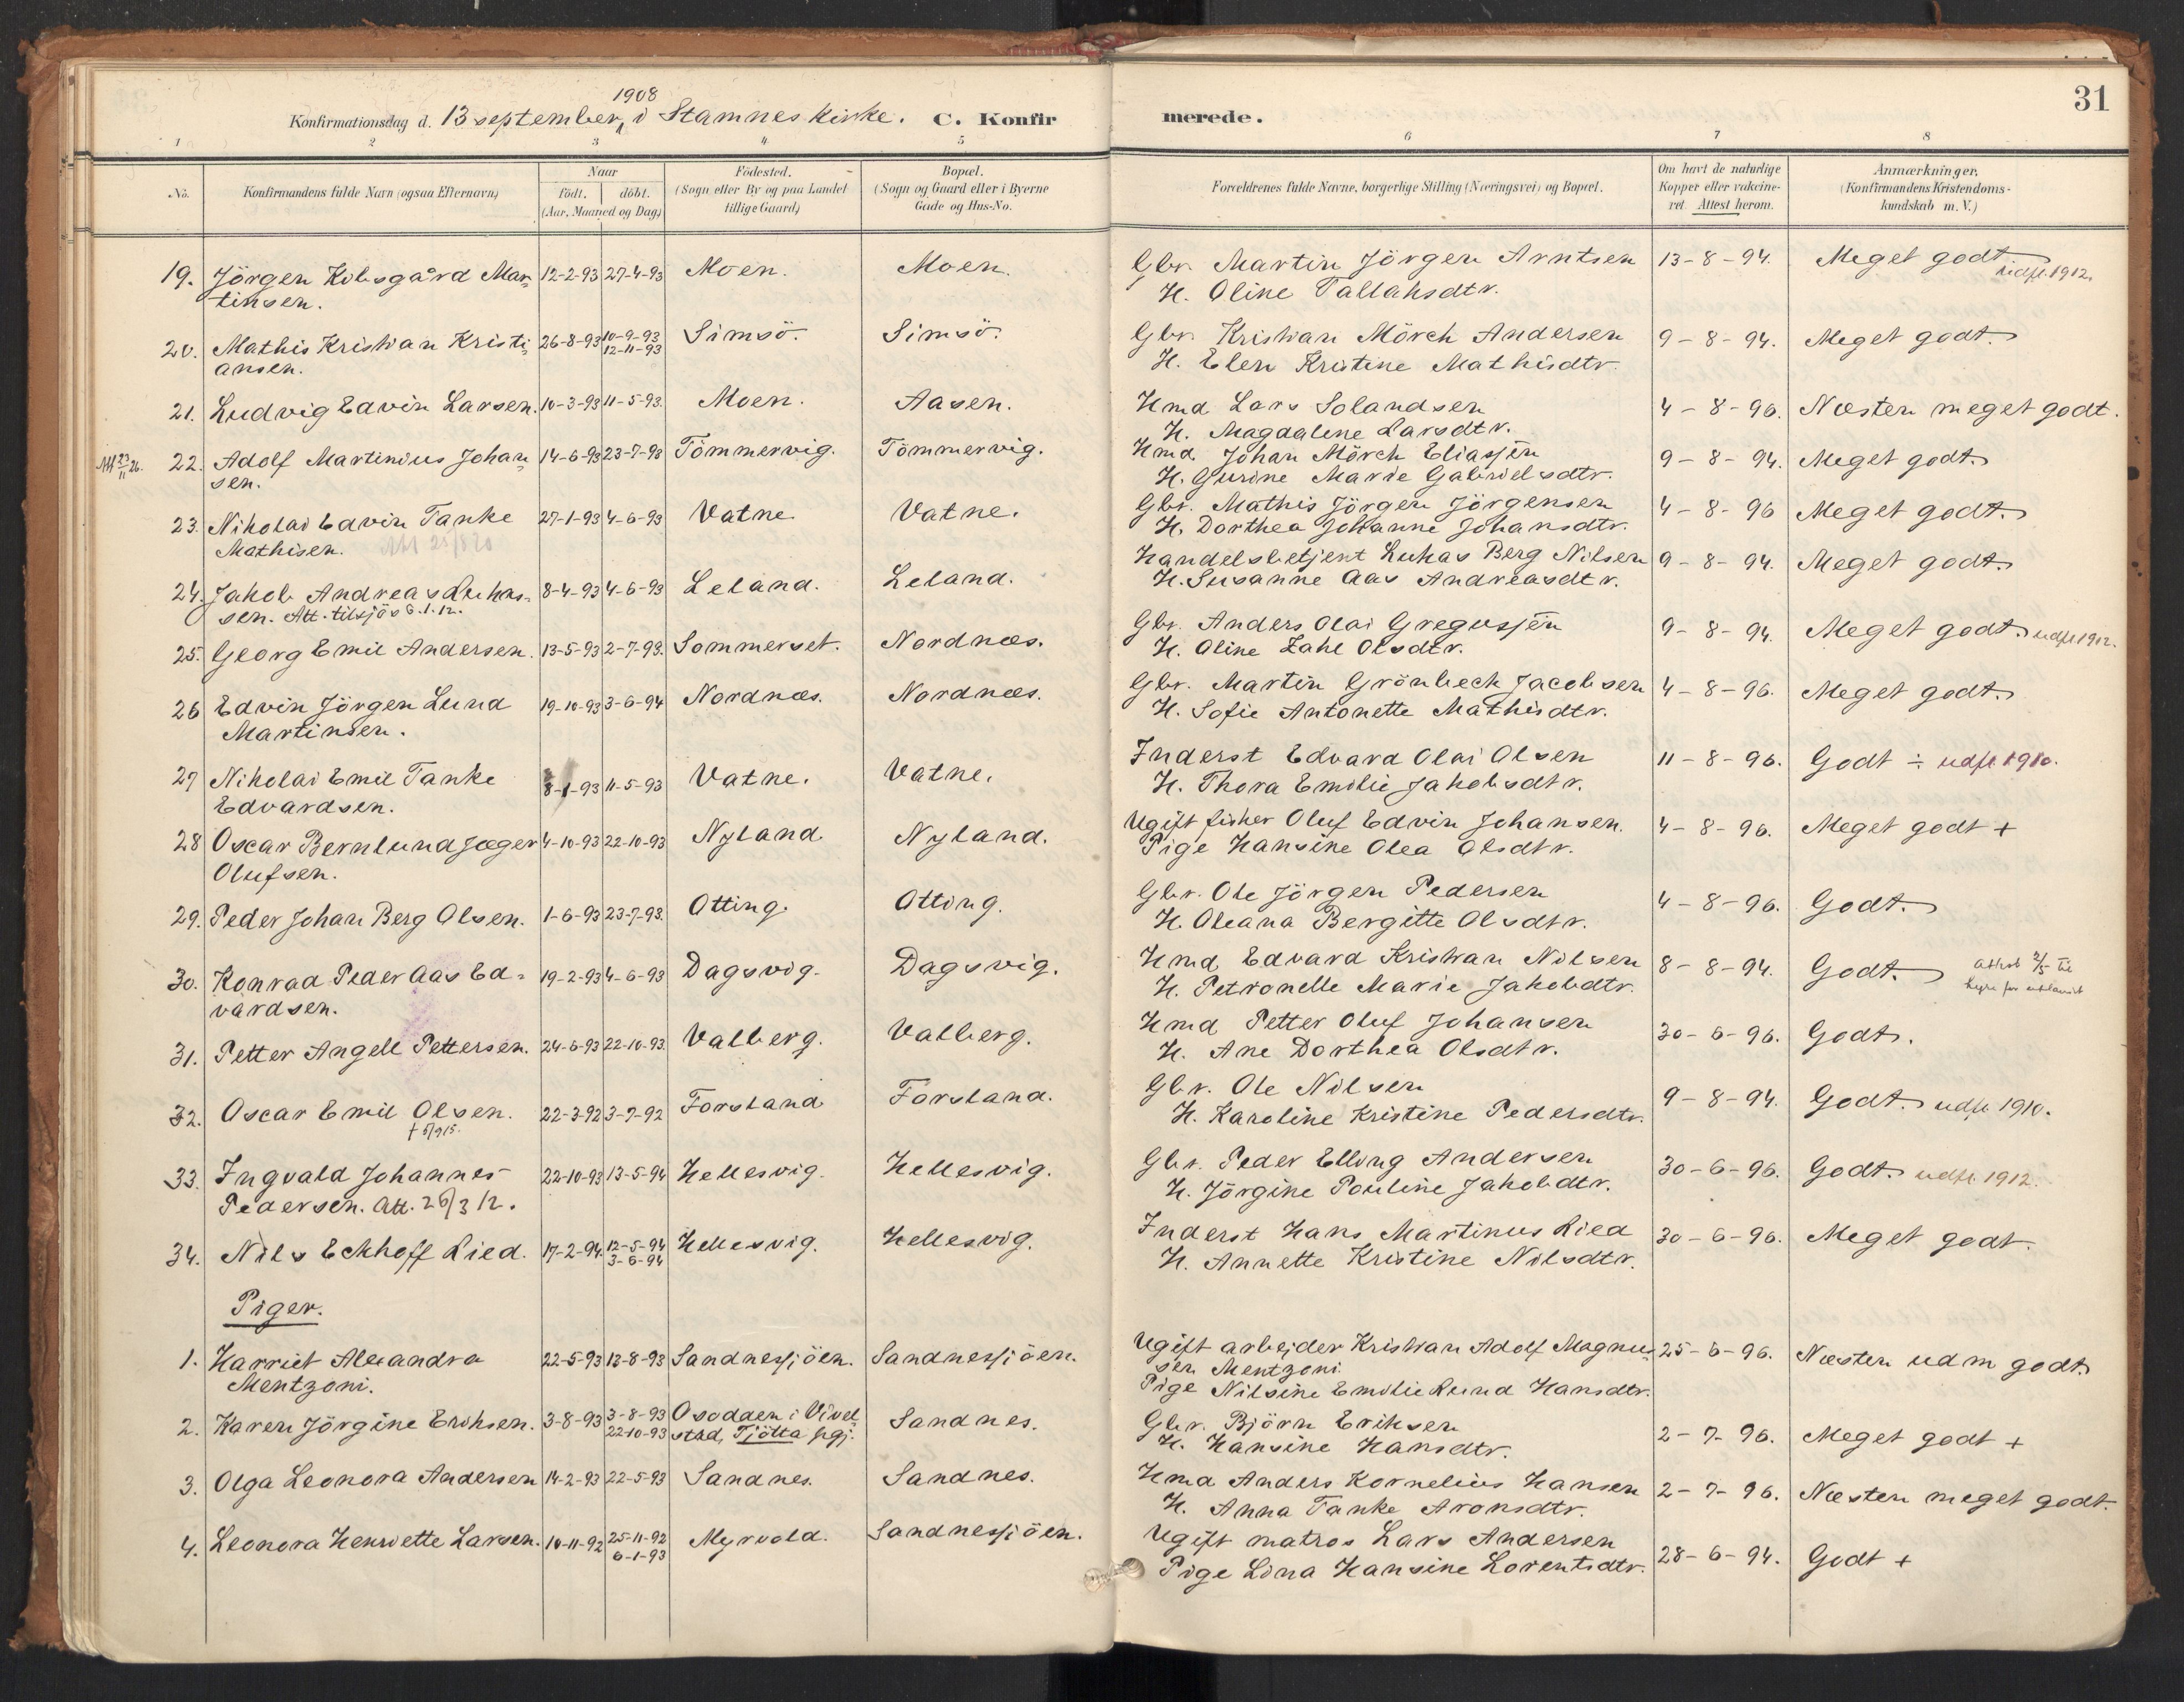 1908
Konfirmationsdag d. 13 september, i Stamnes kirke. C. Konfir
merede.
31
1 2 3 4 5 6 7 8
No.
Konfirmandens fulde Navn (ogsaa Efternavn)
Naar
födt. döbt.
(Aar, Maaned og Dag)
Födested.
(Sogn eller By og paa Landet
tillige Gaard)
Bopæl.
(Sogn og Gaard eller i Byerne
Gade og Hus-No.
Forældrenes fulde Navne, borgerlige Stilling (Næringsvei) og Bopæl.
Om havt de naturlige
Kopper eller vakcine-
ret. Attest herom.
Anmærkninger,
(Konfirmandens Kristendoms-
kundskab m. V.)
19. Jörgen Kibsgård Mar- 12-2-93 27-4-93 Moen. Moen. Gbr. Martin Jörgen Arntsen 13-8-94. Meget godt. udfl. 1912.
tinsen. H. Oline Tallaksdtr.
20. Mathis Kristian Kristi- 26-8-93 10-9-93 Simsö. Simsö. Gbr. Kristian Mörch Andersen 9-8-94. Meget godt.
ansen. 12-11-93 H. Elen Kristine Mathisdtr.
21. Ludvig Edvin Larsen. 10-3-93 11-5-93. Moen. Aasen. Hmd Lars Solandsen 4-8-96. Næsten meget godt.
H. Magdalene Larsdtr.
Att 23/11 26. 22. Adolf Martinius Johan- 14-6-93 23-7-93 Tömmervig. Tömmervig. Hmd. Johan Mörch Eliassen 9-8-94. Meget godt.
sen. H. Gurine Marie Gabrielsdtr.
23. Nikolai Edvin Tanke 27-1-93 4-6-93 Vatne. Vatne. Gbr. Mathis Jörgen Jörgensen 4-8-96 Meget godt.
Mathisen. H. Dorthea Johanne Johansdtr.
24. Jakob Andreas Lukas- 8-4-93 4-6-93 Leland. Leland. Handelsbetjent Lukas Berg Nilsen 9-8-94. Meget godt.
sen. Att. tilsjös 6.1.12. H. Susanne Aas Andreasdtr.
25. Georg Emil Andersen. 13-5-93 2-7-93. Sommerset. Nordnæs. Gbr. Anders Olai Gregussen 9-8-94. Meget godt. udfl 1912.
H. Oline Zahl Olsdtr.
26 Edvin Jörgen Lund 19-10-93 3-6-94 Nordnæs. Nordnæs. Gbr. Martin Grönbeck Jacobsen 4-8-96. Meget godt.
Martinsen. H. Sofie Antonette Mathisdtr.
27 Nikolai Emil Tanke 8-1-93 11-5-93 Vatne. Vatne. Inderst Edvard Olai Olsen 11-8-96. Godt ÷ udfl 1910.
Edvardsen. H. Thora Emilie Jakobsdtr.
28 Oscar Bernlund Jæger 4-10-93 22-10-93 Nyland Nyland. Ugift fisker Oluf Edvin Johansen. 4-8-96. Meget godt +
Olufsen. Pige Hansine Olea Olsdtr.
29. Peder Johan Berg Olsen. 1-6-93 23-7-93. Otting. Otting. Gbr. Ole Jörgen Pedersen 4-8-96. Godt.
H. Oleana Bergitte Olsdtr.
30. Konrad Peder Aas Ed- 19-2-93 4-6-93 Dagsvig. Dagsvig. Hmd Edvard Kristian Nilsen 8-8-94. Godt.
vardsen. H. Petronelle Marie Jakobdtr.
31. Petter Angell Pettersen. 24-6-93 22-10-93. Valberg. Valberg. Hmd Petter Oluf Johansen 30-6-96. Godt.
H. Ane Dorthea Olsdtr.
32. Oscar Emil Olsen. 22-3-92 3-7-92 Forsland Forsland. Gbr. Ole Nilsen 9-8-94. Godt. udfl 1910.
H. Karoline Kristine Pedersdtr.
33. Ingvald Johannes 22-10-93 13-5-94 Hellesvig. Hellesvig. Gbr. Peder Elling Andersen 30-6-96. Godt. udfl. 1912.
Pedersen. Att. 26/3 12. H. Jörgine Pouline Jakobdtr.
34. Nils Eckhoff Lied. 17-2-94. 12-5-94 Hellesvig. Hellesvig. Inderst Hans Martinus Lied 30-6-96. Meget godt.
3-6-94 H. Annette Kristine Nilsdtr.
Piger.
1. Harriet Alexandra 22-5-93 13-8-93 Sandnessjöen. Sandnessjöen. Ugift arbejder Kristian Adolf Magnus- 25-6-96. Næsten udm godt.
Mentzoni. sen Mentzoni.
Pige Nilsine Emilie Lund Hansdtr.
2. Karen Jörgine Eriksen. 3-8-93 3-8-93 Osodden i Vivel- Sandnes. Gbr. Björn Eriksen 2-7-96. Meget godt +
22-10-93 stad, Tjötta pgj. H. Hansine Hansdtr.
3. Olga Leonora Andersen 14-2-93 22-5-93 Sandnes. Sandnes. Hmd Anders Kornelius Hansen 2-7-96. Næsten meget godt.
H. Anna Tanke Aronsdtr.
4. Leonora Henriette Larsen. 10-11-92 25-11-92 Myrvold. Sandnessjöen. Ugift matros Lars Andersen 28-6-94. Godt +
6-1-93 Pige Lina Hansine Lorentsdtr.